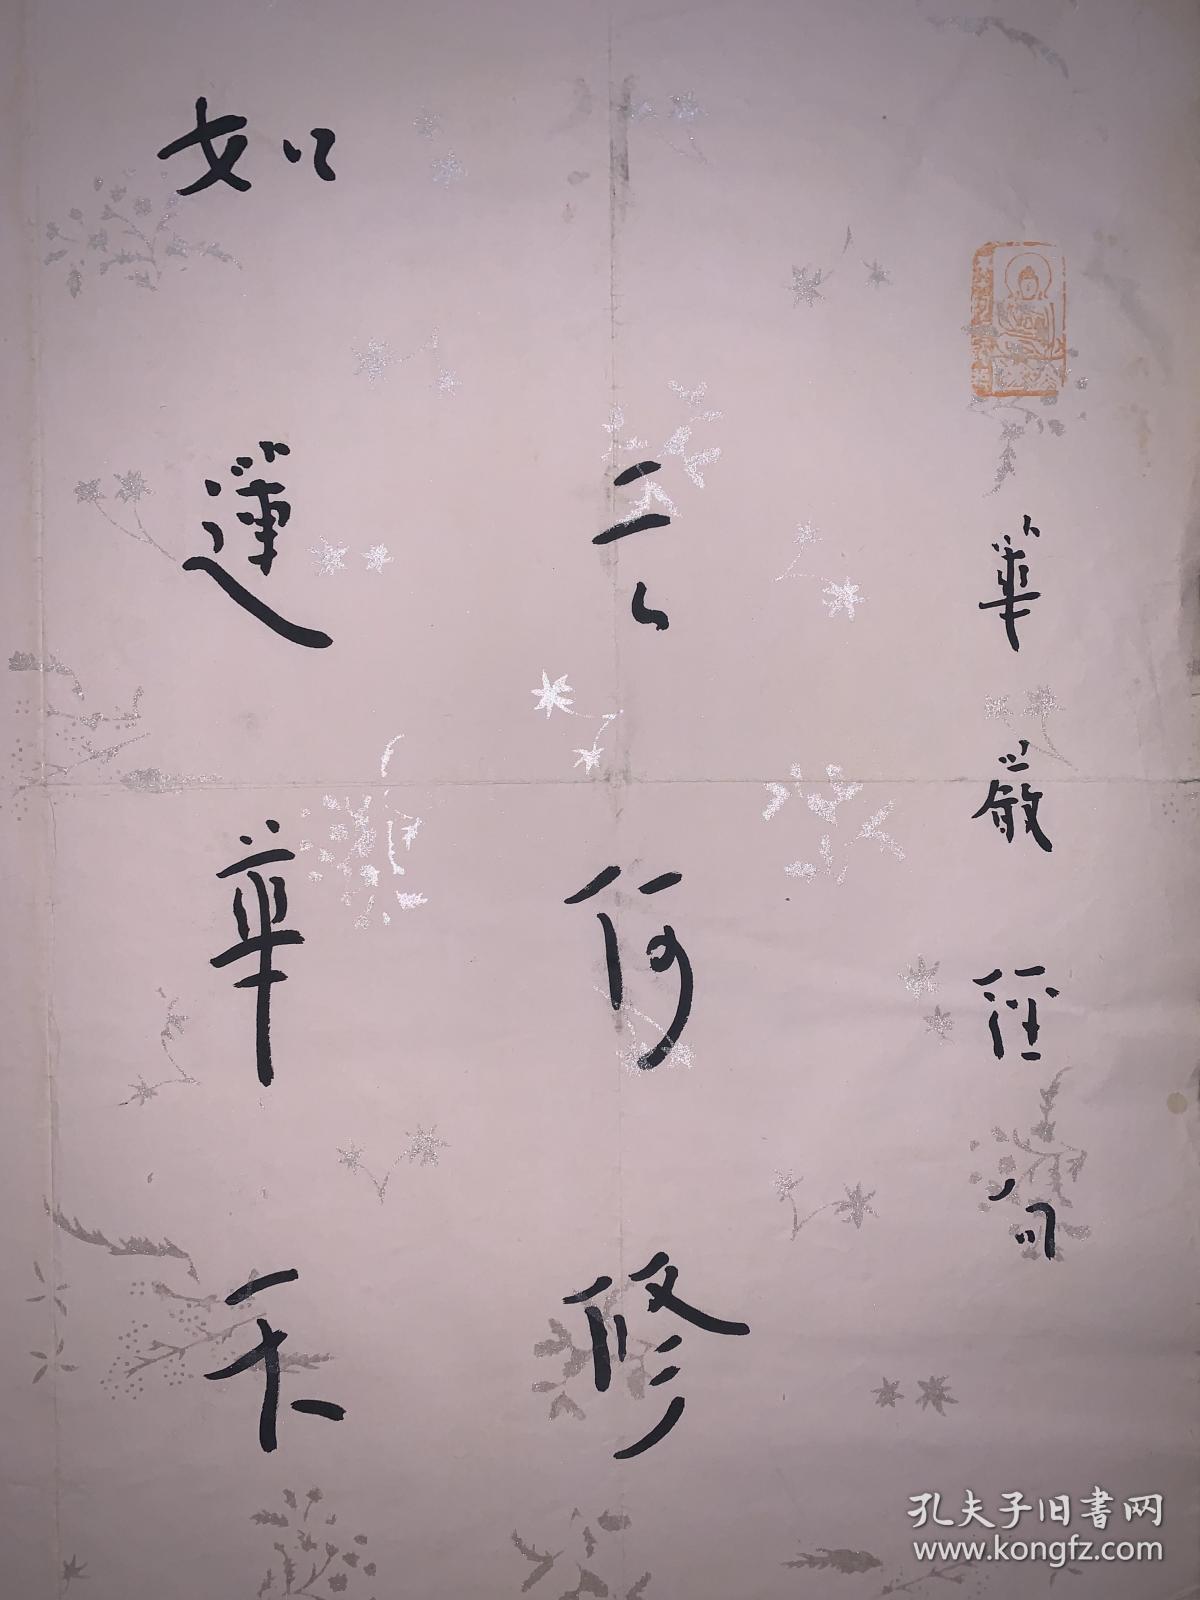 華嚴經句
云何修
如蓮華不
孔夫子旧書网
www.kongfz.com